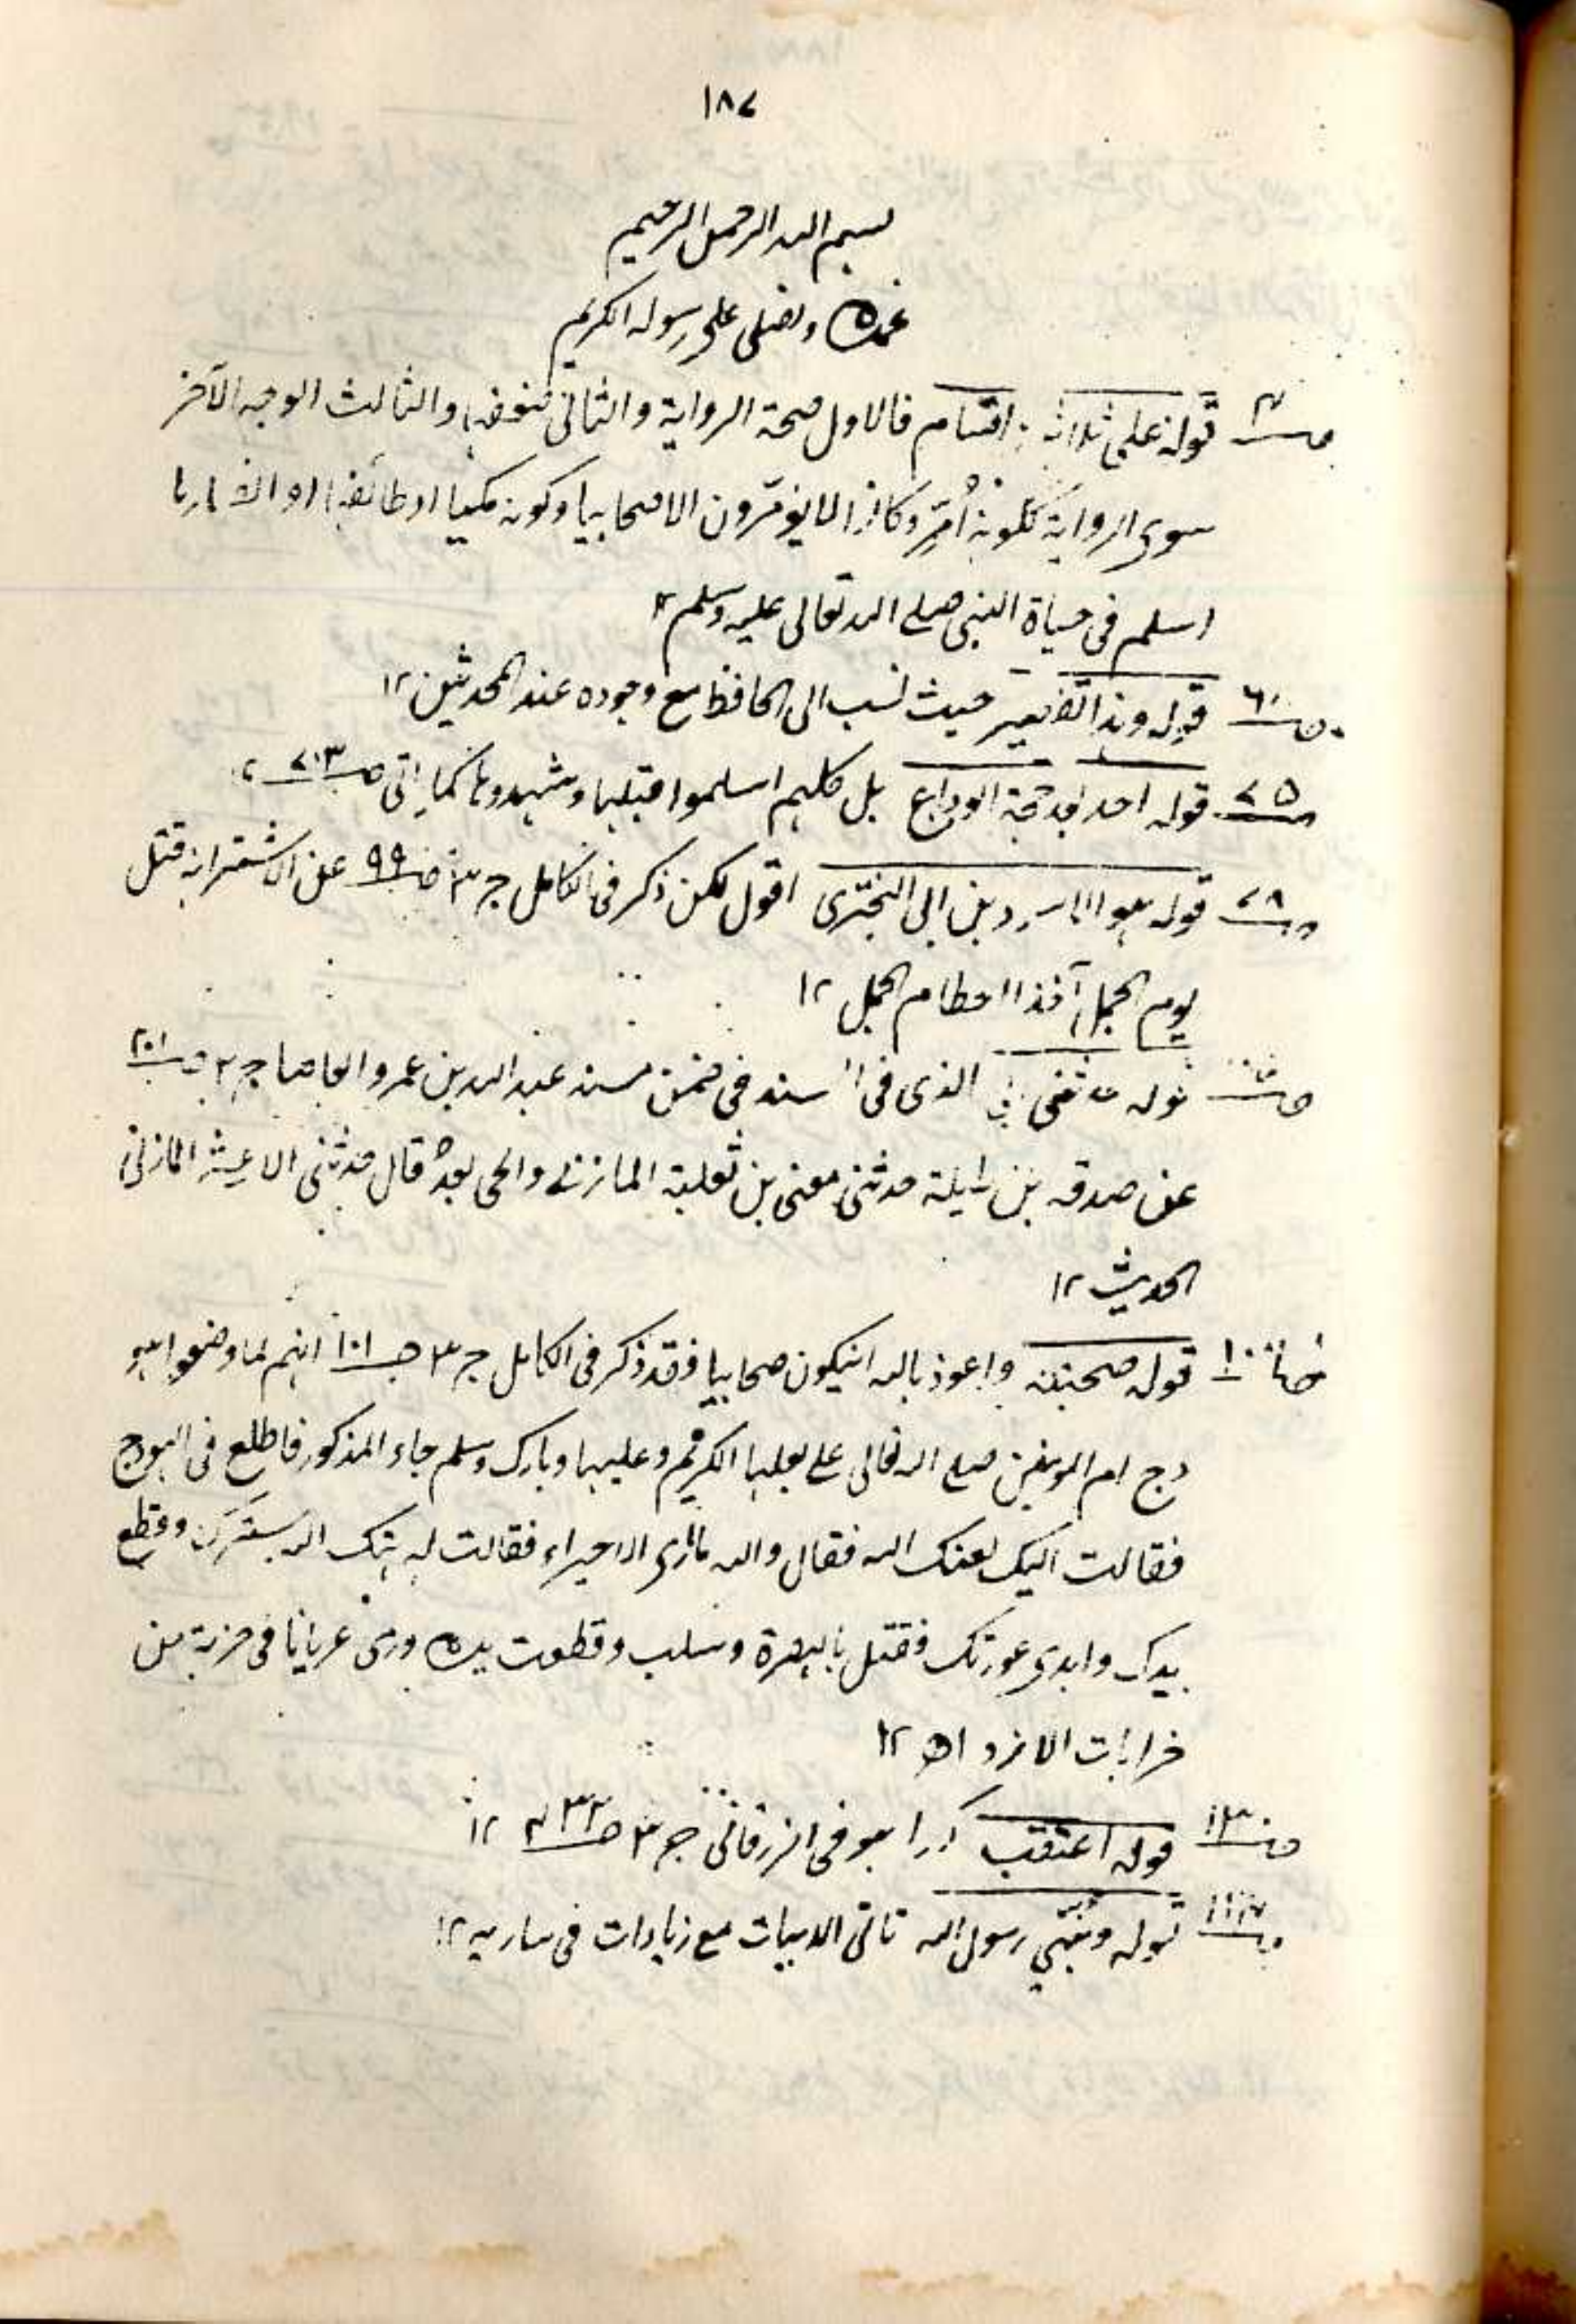 ١٨٧
بسم الله الرحمن الرحيم
نحمده ونصلى على رسوله الكريم
ص٤ قوله على ثلاثة اقسام فالاول صحة الرواية والثانى ضعفها والثالث الوجه الآخر
سوى الرواية ككونه أُمِّر وكانوا لا يؤمّرون الا صحابيا وكونه مكيا او طائفيا او
اسلم فى حياة النبى صلے الله تعالى عليه وسلم ١٢
ص٦١ قوله وهذا تقصير حيث نسب الى الحافظ مع وجوده عند المحدثين ١٢
ص٧٥ قوله احد بعد حجة الوداع بل كلهم اسلموا قبلها وشهدوها كما ياتى ص٢١٣ ١٢
ص٧٨ قوله هو الاسود بن ابى البخترى اقول لكن ذكر فى الكامل ج ٣ ص٩٩ عن الاشتر انه قتل
يوم الجمل آخذا خطام الجمل ١٢
قوله الذى فى سنده فى ضمن مسند عبد الله بن عمرو العاص ج ٢ ص٢٠١
عن صدقه بن طيلة حدثنى معنى بن ثعلبة المازنى والحى بعدُ قال حدثنى الاعشى المازنى
الحديث ١٢
ص١٠٠ قوله صحبته واعوذ بالله ان يكون صحابيا فقد ذكر فى الكامل ج ٣ ص١٠١ انهم لما وضعوا هو
دج ام المومنين صلے الله تعالى على بعلها الكريم وعليها وبارك وسلم جاء المذكور فاطلع فى الهودج
فقالت اليك لعنك الله فقال والله ما ارى الا حميراء فقالت له هتك الله سترك وقطع
يدك وابدى عورتك فقتل بالبصرة وسلب وقطعت يده ورمى عريانا فى خربة من
خرابات الازد اھ ١٢
قوله اعتقب هو فى الزرقانى ج ٣ ص٣٣٤ ١٢
قوله ونبّي رسول الله تاتى الابيات مع زيادات فى ساريه ١٢